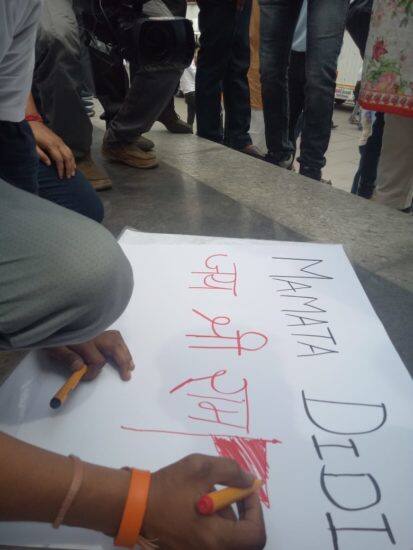 MAMATA DIDI
जय श्री राम